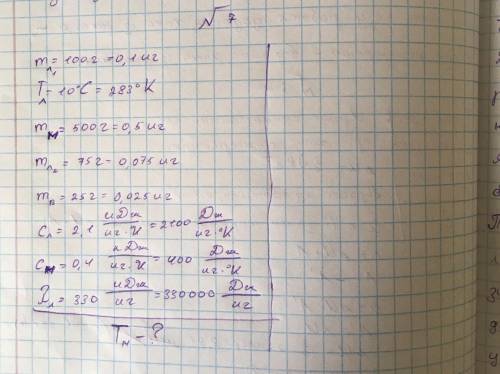 √7
m_Л₁ = 100г = 0,1 кг
T_Л = 10°C = 283°K
m_М = 500г = 0,5 кг
m_Л₂ = 75г = 0,075 кг
m_В = 25г = 0,025 кг
c_Л = 2,1 кДж/кг·°K = 2100 Дж/кг·°K
c_М = 0,4 кДж/кг·°K = 400 Дж/кг·°K
λ_Л = 330 кДж/кг = 330000 Дж/кг
T_N - ?